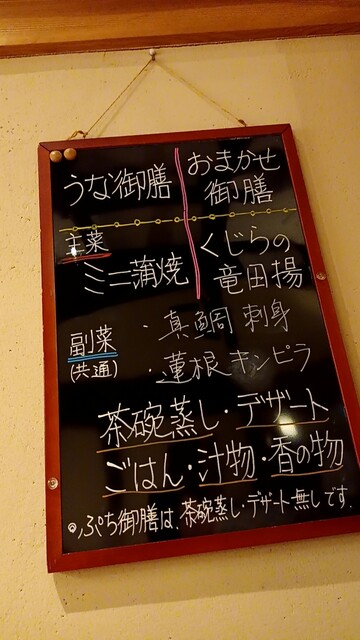 うな御膳
おまかせ
御膳
主菜
ミニ蒲焼
くじらの
竜田揚
副菜
(共通)
・真鯛 刺身
・蓮根キンピラ
茶碗蒸し・デザート
ごはん・汁物・香の物
◎ぷち御膳は、茶碗蒸し・デザート無しです。